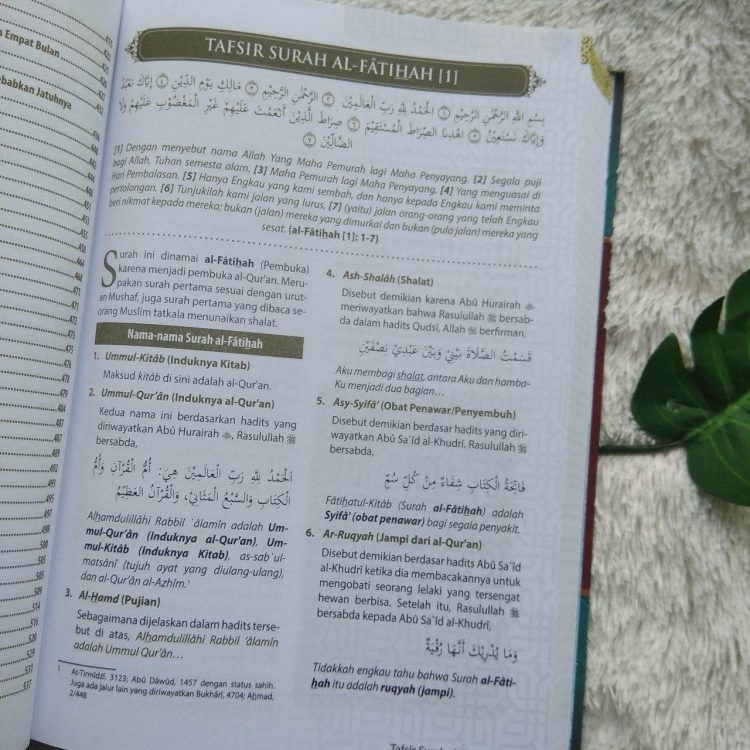 475
423
a Empat Bulan
425
babkan Jatuhnya
436
442
443
447
450
453
451
471
473
475
478
479
464
487
487
489
492
493
498
500
507
505
509
514
530
527
537
TAFSIR SURAH AL-FÂTIHAH [1]
بِسْمِ اللَّهِ الرَّحْمَٰنِ الرَّحِيْمِ ١ الْحَمْدُ لِلَّهِ رَبِّ الْعَالَمِيْنَ ٢ الرَّحْمَٰنِ الرَّحِيْمِ ٣ مَالِكِ يَوْمِ الدِّيْنِ ٤ إِيَّاكَ نَعْبُدُ
وَإِيَّاكَ نَسْتَعِيْنُ ٥ اهْدِنَا الصِّرَاطَ الْمُسْتَقِيْمَ ٦ صِرَاطَ الَّذِيْنَ أَنْعَمْتَ عَلَيْهِمْ غَيْرِ الْمَغْضُوْبِ عَلَيْهِمْ وَلَا
الضَّالِّيْنَ ٧
[1] Dengan menyebut nama Allah Yang Maha Pemurah lagi Maha Penyayang. [2] Segala puji
bagi Allah, Tuhan semesta alam. [3] Maha Pemurah lagi Maha Penyayang. [4] Yang menguasai di
Hari Pembalasan. [5] Hanya Engkau yang kami sembah, dan hanya kepada Engkau kami meminta
pertolongan. [6] Tunjukilah kami jalan yang lurus, [7] (yaitu) jalan orang-orang yang telah Engkau
beri nikmat kepada mereka; bukan (jalan) mereka yang dimurkai dan bukan (pula jalan) mereka yang
sesat. (al-Fâtihah [1]: 1-7)
Surah ini dinamai al-Fâtihah (Pembuka)
karena menjadi pembuka al-Qur'an. Meru-
pakan surah pertama sesuai dengan urut-
an Mushaf, juga surah pertama yang dibaca se-
orang Muslim tatkala menunaikan shalat.
Nama-nama Surah al-Fâtihah
1. Ummul-Kitâb (Induknya Kitab)
Maksud kitâb di sini adalah al-Qur'an.
2. Ummul-Qur'ân (Induknya al-Qur'an)
Kedua nama ini berdasarkan hadits yang
diriwayatkan Abû Hurairah ﵁, Rasulullah ﷺ
bersabda,
اَلْحَمْدُ لِلَّهِ رَبِّ الْعَالَمِيْنَ هِيَ: أُمُّ الْقُرْآنِ وَأُمُّ
الْكِتَابِ وَالسَّبْعُ الْمَثَانِيْ، وَالْقُرْآنُ الْعَظِيْمُ
Alhamdulillâhi Rabbil `âlamîn adalah Um-
mul-Qur'ân (Induknya al-Qur'an), Um-
mul-Kitâb (Induknya Kitab), as-sab`ul-
matsânî (tujuh ayat yang diulang-ulang),
dan al-Qur'ân al-Azhîm.¹
3. Al-Hamd (Pujian)
Sebagaimana dijelaskan dalam hadits terse-
but di atas, Alhamdulillâhi Rabbil `âlamîn
adalah Ummul Qur'ân…
1 At-Tirmidzî, 3123; Abû Dâwûd, 1457 dengan status sahih.
Juga ada jalur lain yang diriwayatkan Bukhârî, 4704; Ahmad,
2/448
4. Ash-Shalâh (Shalat)
Disebut demikian karena Abû Hurairah ﵁
meriwayatkan bahwa Rasulullah ﷺ bersab-
da dalam hadits Qudsi, Allah ﷻ berfirman,
قَسَمْتُ الصَّلَاةَ بَيْنِيْ وَبَيْنَ عَبْدِيْ نِصْفَيْنِ
Aku membagi shalat, antara Aku dan hamba-
Ku menjadi dua bagian…
5. Asy-Syifâ' (Obat Penawar/Penyembuh)
Disebut demikian berdasar hadits yang diri-
wayatkan Abû Sa`îd al-Khudrî. Rasulullah ﷺ
bersabda,
فَاتِحَةُ الْكِتَابِ شِفَاءٌ مِنْ كُلِّ سُمٍّ
Fâtihatul-Kitâb (Surah al-Fâtihah) adalah
Syifâ' (obat penawar) bagi segala penyakit.
6. Ar-Ruqyah (Jampi dari al-Qur'an)
Disebut demikian berdasar hadits Abû Sa`îd
al-Khudrî ketika dia membacakannya untuk
mengobati seorang lelaki yang tersengat
hewan berbisa. Setelah itu, Rasulullah ﷺ
bersabda kepada Abû Sa`îd al-Khudrî,
وَمَا يُدْرِيْكَ أَنَّهَا رُقْيَةٌ
Tidakkah engkau tahu bahwa Surah al-Fâti-
hah itu adalah ruqyah (jampi).